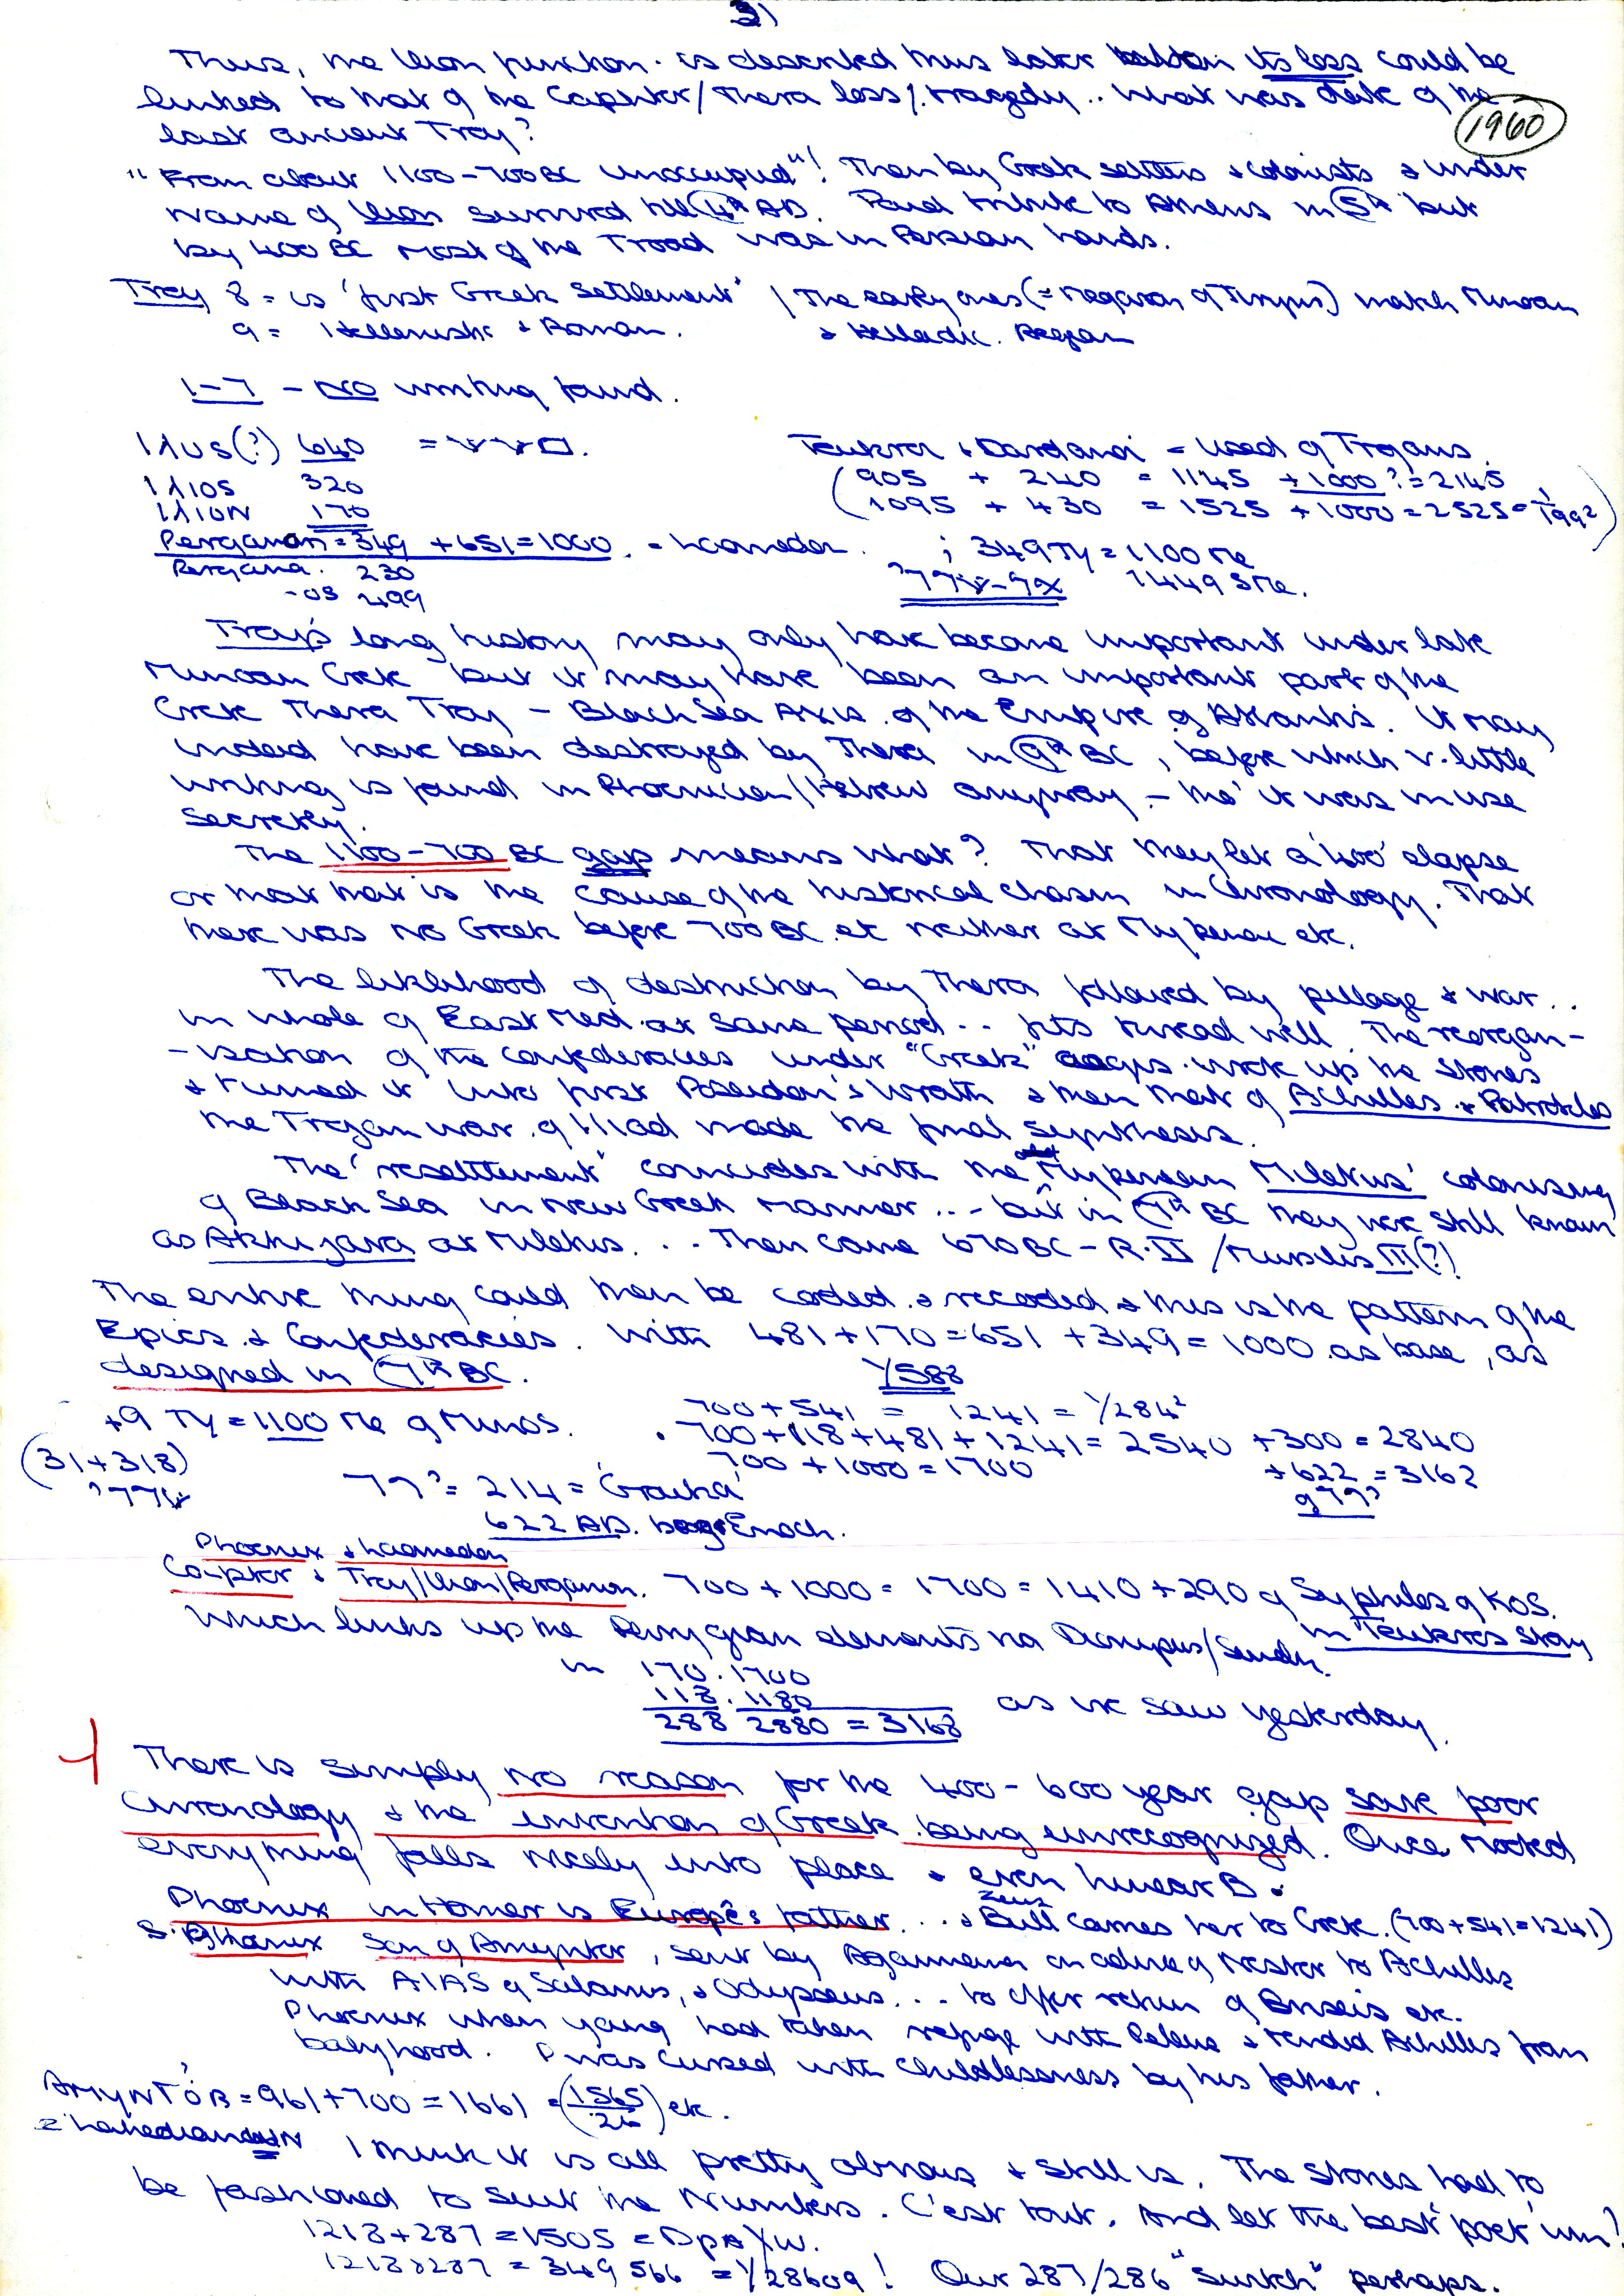 3)
Thus, the Ilion function is described thus later its loss could be
linked to that of the Caphtor/Thera loss/tragedy.. What was date of the
last ancient Troy?
1960
"From about 1100-700BC unoccupied"! Then by Greek settlers & colonists & under
name of Ilion survived till 4th AD. Paid tribute to Athens in 5th but
by 400 BC most of the Troad was in Persian hands.
Troy 8 = is 'first Greek Settlement' / The early ones (= megaron of Tiryns) match Minoan
9 = Hellenistic & Roman. & Helladic. Aegean
1-7 - NO writing found.
Ilus(?) 640
Ilios 320
Ilion 170
Pergamon = 349 + 651 = 1000 = Laomedon.
Pergama. 230
-os 499
Teukroi & Dardanoi = used of Trojans.
(905 + 240 = 1145 + 1000? = 2145
1095 + 430 = 1525 + 1000 = 2525 = 1/1992)
; 349 TY = 1100 Me
1449 SMe.
Troy's long history may only have become important under late
Minoan Crete but it may have been an important part of the
Crete Thera Troy - Black Sea Axis of the Empire of Atlantis. It may
indeed have been destroyed by Thera in 9th BC, before which v. little
writing is found in Phoenician/Hebrew anyway - tho' it was in use
secretly.
The 1100-700 BC gap means what? That they let a '400' elapse
or that that is the cause of the historical chasm in Chronology. That
there was no Greek before 700BC at neither at Mykenai etc.
The liklihood of destruction by Thera followed by pillage & war..
in whole of East Med. at same period.. fits thread well. The reorgan-
-isation of the confederacies under "Greek" aegis. took up the stories
& turned it into first Poseidon's Wrath & then that of Achilles & Patrokles
the Trojan war of Iliad made the final synthesis.
The 'resettlement' coincides with the Mykenean Miletus' colonising
of Black Sea in new Greek manner... - but in 7th BC they were still known
as Akhiyava at Miletus... Then came 670BC - R.II / Mursilis III(?)
The entire thing could then be coded & recoded & this is the pattern of the
Epics & Confederacies. With 481+170=651 +349=1000 as base, as
designed in 7th BC.
1/588
+9 TY = 1100 Me of Minos.
(31+318)
700 + 541 = 1241 = 1/284²
700+118+481+1241 = 2540 +300 = 2840
700 + 1000 = 1700 +622 = 3162
= 214 = 'Graika'
622 AD. Enoch.
Phoenix & Laomedon
Caphtor & Troy/Ilion/Pergamon. 700 + 1000 = 1700 = 1410 + 290 of Syphilos of KOS.
in Teukros story
which links up the Phrygian elements via
in 170 . 1700
118 . 1180
288 2880 = 3168 as we saw yesterday.
There is simply no reason for the 400-600 year gap save poor
chronology & the invention of Greek being unrecognized. Once mooted
everything falls nicely into place & even Linear B.
Phoenix in Homer is Europe's father... & Zeus Bull carries her to Crete. (700+541=1241)
Phoenix son of Amyntor, sent by Agamemnon on advice of Nestor to Achilles
with AIAS of Salamis, & Odysseus... to offer return of Briseis etc.
Phoenix when young had taken refuge with Peleus & tended Achilles from
babyhood. P was cursed with childlessness by his father.
AMYNTOR = 961+700 = 1661 = (1565/26) etc.
I think it is all pretty obvious & still is. The stories had to
be fashioned to suit the Numbers. C'est tout. And let the best "poet" win!
1218+287 = 1505
1218x287 = 349566 = 1/28609! Our 287/286 "switch" perhaps.